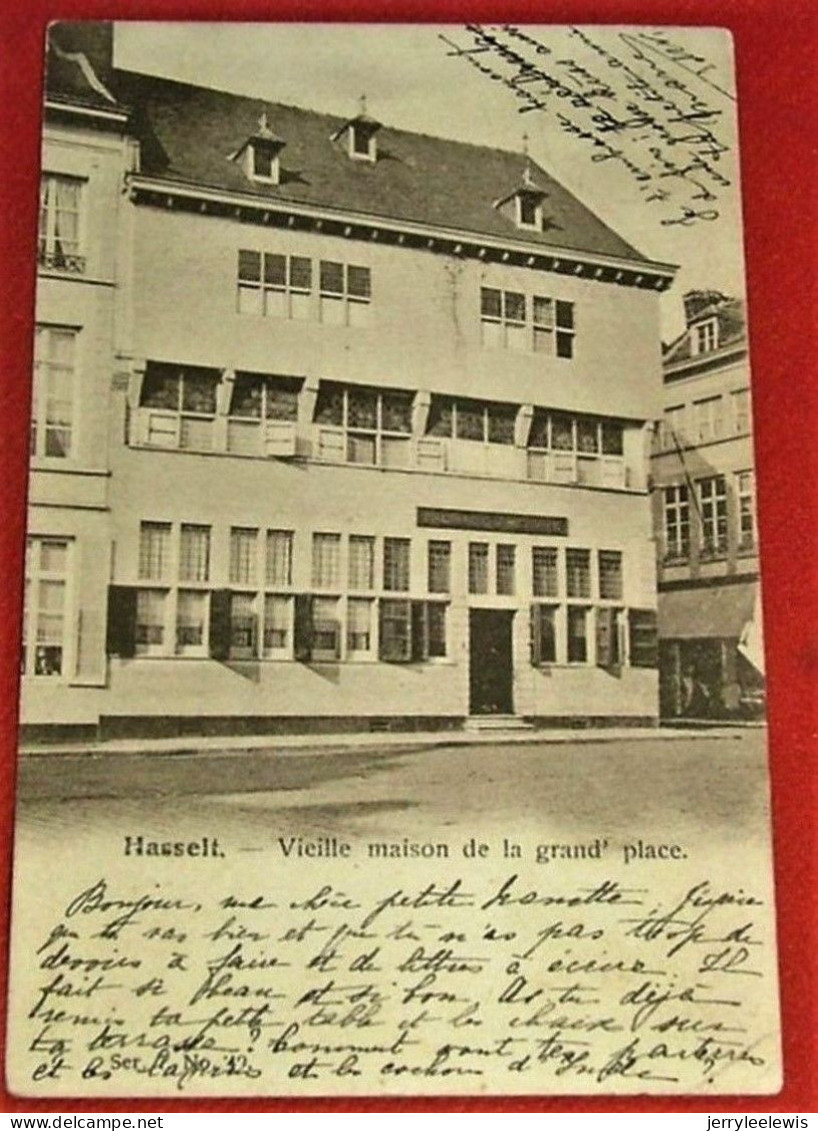 Hasselt. — Vieille maison de la grand' place.
Bonjour, ma chère petite Nanotte. J'espère
que tu vas bien et que tu n'as pas trop de
devoirs à faire et de lettres à écrire. Il
fait si beau et si bon. As tu déjà
remis ta petite table et les chaises sur
ta terrasse? Comment vont tes parterres
et les lapins et les cochons d'Inde?
Ser. 9, No. 42
Je t'embrasse
petite amie
jerryleelewis